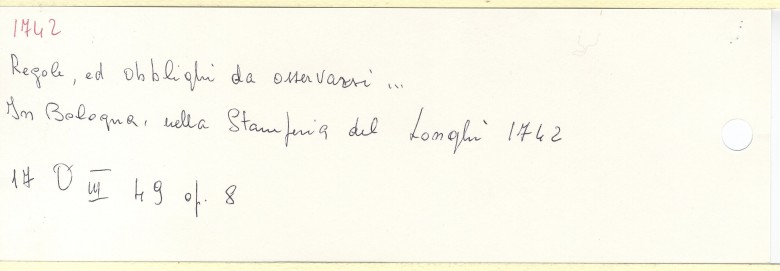 1742
Regole, ed obblighi da osservarsi ...
In Bologna, nella Stamperia del Longhi 1742
17 O III 49 op. 8